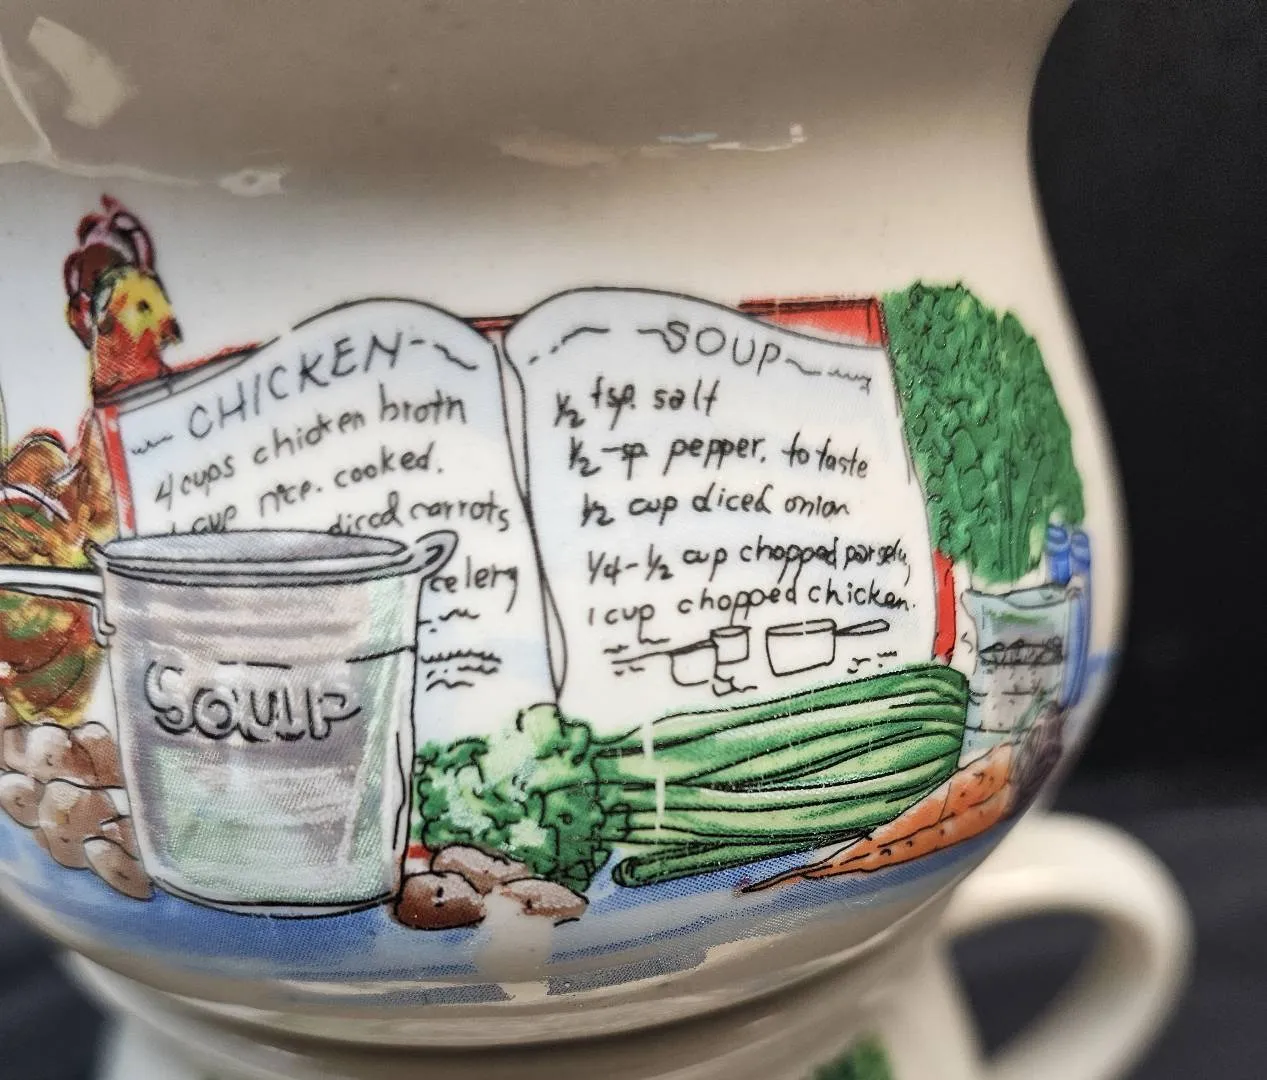 CHICKEN
4 cups chicken broth
1 cup rice. cooked.
diced carrots
celery
SOUP
1/2 tsp. salt
1/2 -sp pepper. to taste
1/2 cup diced onion
1/4-1/2 cup chopped parsely
1 cup chopped chicken.
SOUP